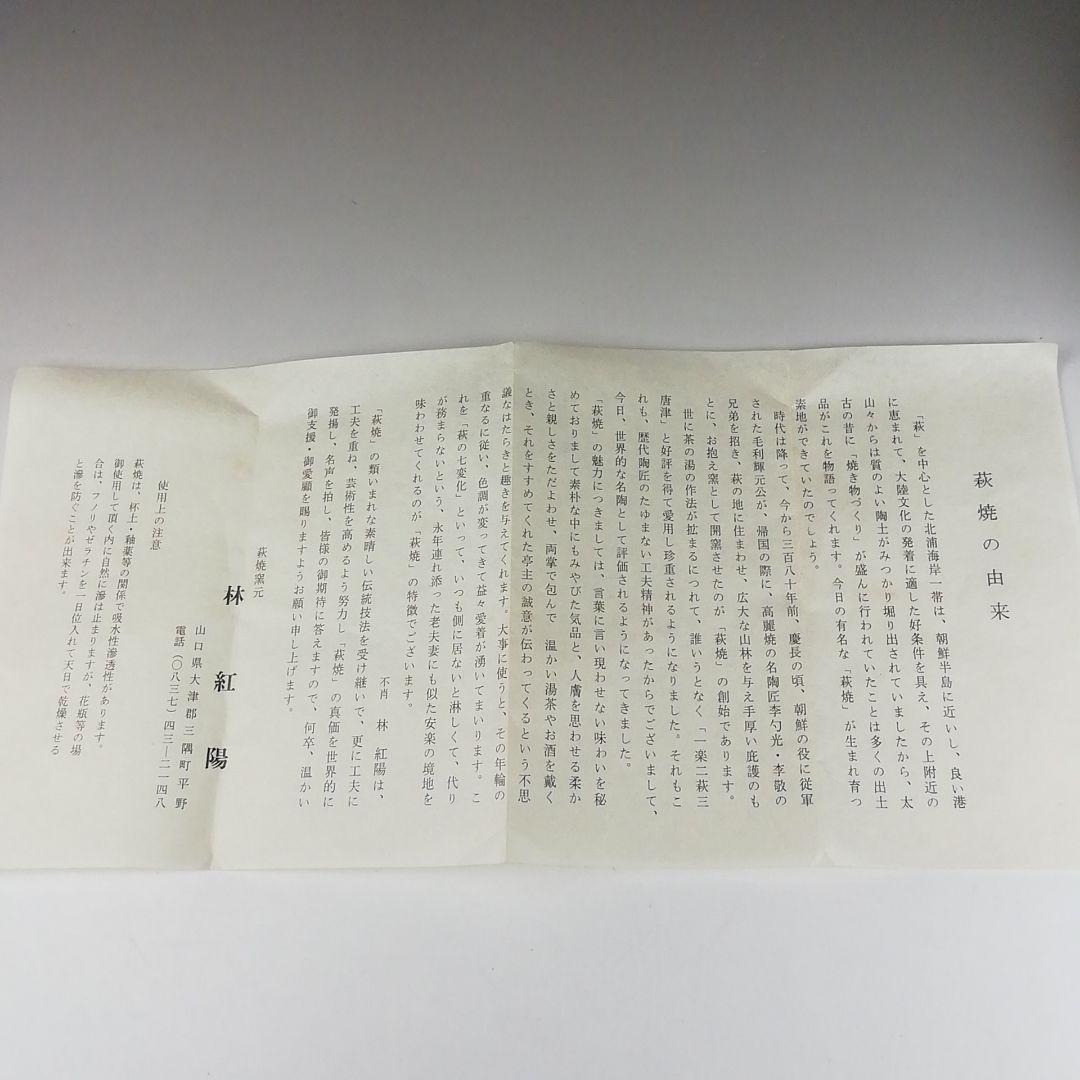 萩焼の由来
「萩」を中心とした北浦海岸一帯は、朝鮮半島に近いし、良い港
に恵まれて、大陸文化の発着に適した好条件を具え、その上附近の
山々からは質のよい陶土がみつかり堀り出されていましたから、太
古の昔に「焼き物づくり」が盛んに行われていたことは多くの出土
品がこれを物語ってくれます。今日の有名な「萩焼」が生まれ育つ
素地ができていたのでしょう。
時代は降って、今から三百八十年前、慶長の頃、朝鮮の役に従軍
された毛利輝元公が、帰国の際に、高麗焼の名陶匠李勺光・李敬の
兄弟を招き、萩の地に住まわせ、広大な山林を与え手厚い庇護のも
とに、お抱え窯として開窯させたのが「萩焼」の創始であります。
世に茶の湯の作法が拡まるにつれて、誰いうとなく「一楽二萩三
唐津」と好評を得て愛用し珍重されるようになりました。それもこ
れも、歴代陶匠のたゆまない工夫精神があったからでございまして、
今日、世界的な名陶として評価されるようになってきました。
「萩焼」の魅力につきましては、言葉に言い現わせない味わいを秘
めておりまして素朴な中にもみやびた気品と、人膚を思わせる柔か
さと親しさをただよわせ、両掌で包んで 温かい湯茶やお酒を戴く
とき、それをすすめてくれた亭主の誠意が伝わってくるという不思
議なはたらきと趣きを与えてくれます。大事に使うと、その年輪の
重なるに従い、色調が変ってきて益々愛着が湧いてまいります。こ
れを「萩の七変化」といって、いつも側に居ないと淋しくて、代り
が務まらないという、永年連れ添った老夫妻にも似た安楽の境地を
味わわせてくれるのが「萩焼」の特徴でございます。
不肖 林 紅陽は、
「萩焼」の類いまれな素晴しい伝統技法を受け継いで、更に工夫に
工夫を重ね、芸術性を高めるよう努力し「萩焼」の真価を世界的に
発揚し、名声を拍し、皆様の御期待に答えますので、何卒、温かい
御支援・御愛顧を賜りますようお願い申し上げます。
萩焼窯元
林 紅 陽
山口県大津郡三隅町平野
電話(〇八三七)四三―二一四八
使用上の注意
萩焼は、杯土・釉薬等の関係で吸水性滲透性があります。
御使用して頂く内に自然に滲は止まりますが、花瓶等の場
合は、フノリやゼラチンを一日位入れて天日で乾燥させる
と滲を防ぐことが出来ます。